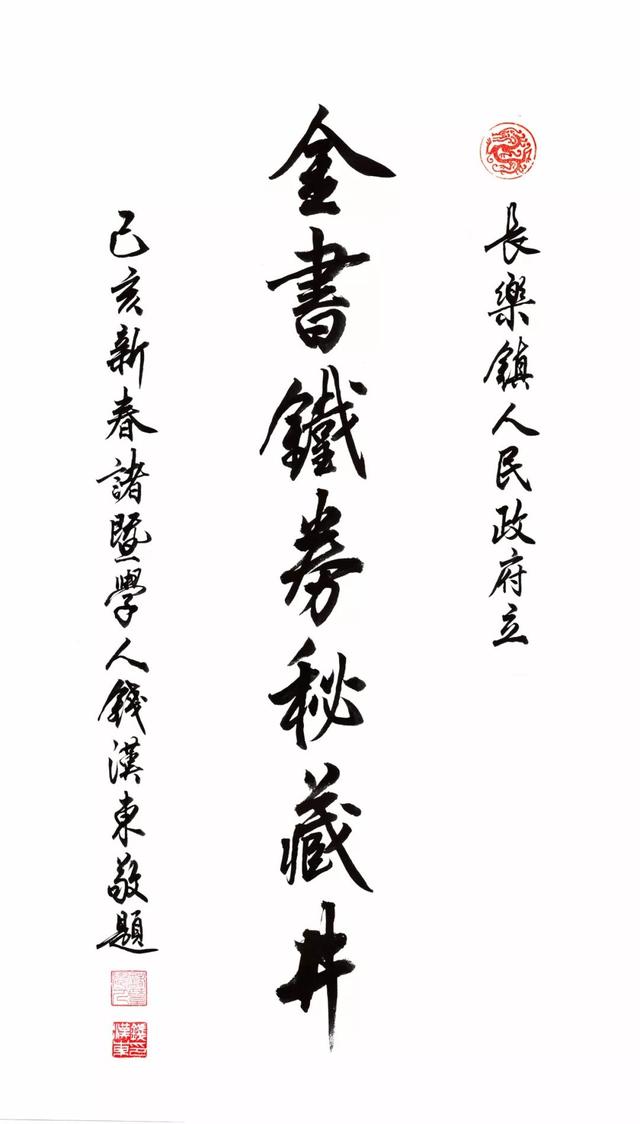 長樂鎮人民政府立
金書鐵券秘藏井
己亥新春諸暨學人錢漢東敬題